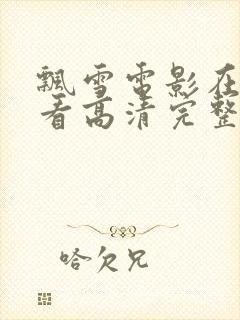 飘雪电影在
看高清完整
哈欠兄